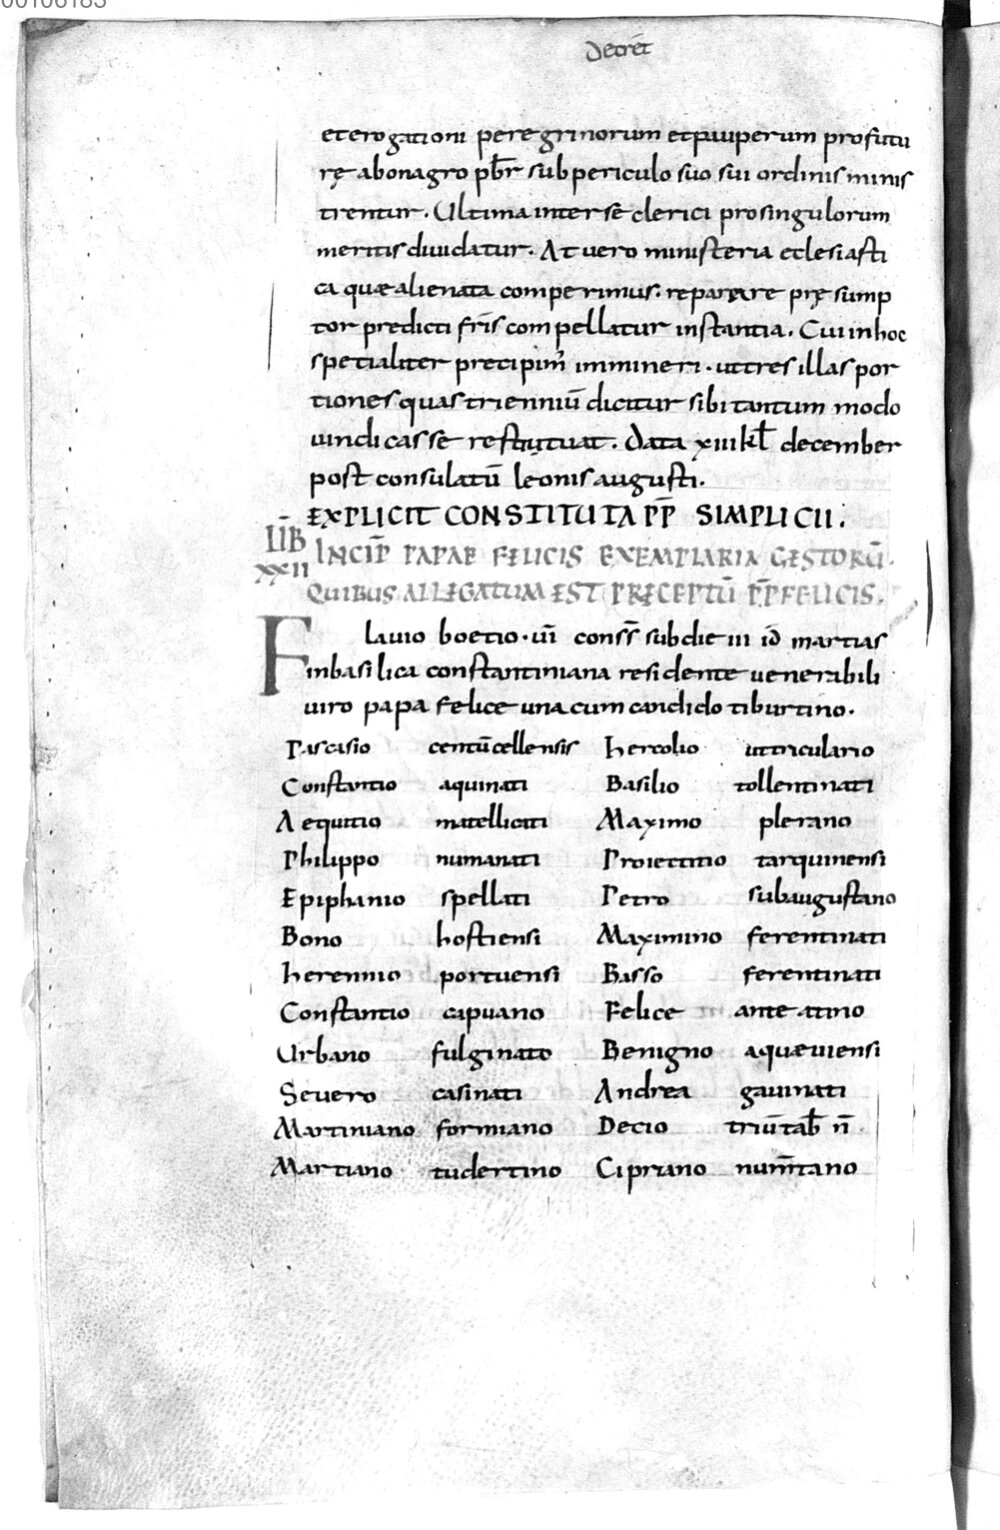 00106183
Decret
et erogationi peregrinorum et pauperum profutu
rę abonagro pb̄r sub periculo suo sui ordinis minis
trentur. Ultima inter se clerici pro singulorum
meritis diuidatur. At uero ministeria eclesiasti
ca quæ alienata comperimus. reparare prę sump
tor predicti fr̄is compellatur instantia. Cui in hoc
spetialiter precipim̄ immineri. ut tres illas por
tiones quas trienniū dicitur sibi tantum modo
uindicasse restituat. Data xiii kl̄ december
post consulatū leonis augusti.
EXPLICIT CONSTITUTA PP̄ SIMPLICII.
LIB̄ XXII
INCIP̄ PAPAE FELICIS EXEMPLARIA GESTORŪ.
QUIBUS ALLEGATUM EST PRĘCEPTŪ PP̄ FELICIS.
Flauio boetio. uī conss̄ sub die iii id̄ martias
in basilica constantiniana residente uenerabili
uiro papa felice una cum candido tiburtino.
Pascasio centūcellensis herculio utriculario
Constantio aquinati Basilio tollentinati
Aequitio matellicati Maximo plerano
Philippo numanati Proiectitio tarquinensi
Epiphanio spellati Petro subaugustano
Bono hostiensi Maximino ferentinati
herennio portuensi Basso ferentinati
Constantio capuano Felice ante atino
Urbano fulginato Benigno aquæuiensi
Seuero casinati Andrea gauinati
Martiniano formiano Decio triūtab̄ n̄
Martiano tudertino Cipriano num̄tano